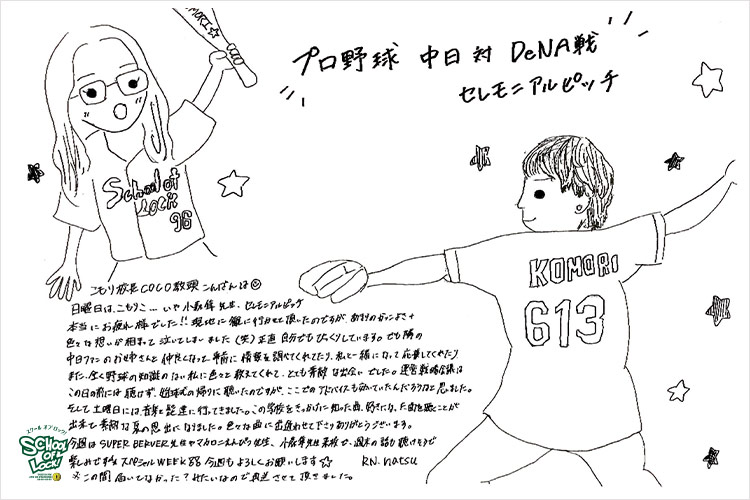 プロ野球 中日 対 DeNA戦
セレモニアルピッチ
MORI☆
School of
LOCK
96
KOMORI
613
こもり校長COCO教頭 こんばんは
日曜日は、こもりこ…いや小森隼先生、セレモニアルピッチ
本当にお疲れ様でした!! 現地に観に行かせて頂いたのですが、あまりのかっこよさと
色々な想いが相まって泣いてしまいました(笑)正直自分でもびっくりしています。でも隣の
中日ファンのおじ様さんと仲良くなって、事前に情報を調べてくれてたり、私と一緒になって応援してくれたり
また、全く野球の知識のない私に色々と教えてくれて、とても素敵な出会いでした。運営戦略会議は
この日の前には聴けず、始球式の帰りに聴いたのですが、ここでのアドバイスも効いていたんだろうなと思いました。
そして土曜日には、音
に行ってきました。この学校をきっかけに知った曲、好きになった曲を聴くことが
出来て素敵な夏の思い出になりました。色々な曲に出逢わせて下さりありがとうございます。
今週はSUPER BERVER先生やマカロニえんぴつ先生、小森隼先生来校で、週末の話も聴けそうで
楽しみですね スペシャルWEEK 今週もよろしくお願いします☆
RN. natsu
※この間届いてなかった?みたいなので再送させて頂きました。
スクール オブ ロック!
SCHOOL
OF
LOCK!